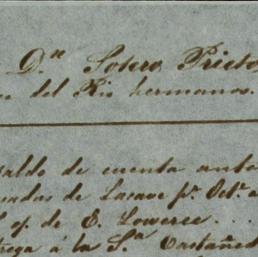 Dn Sotero Prieto
del Rio hermanos.
saldo de cuenta ante
de Lacave pr. Octe. a
of. de E. Lowerce. . .
trega á la Sra Castañed